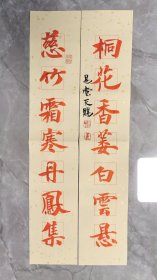 桐花香萎白雲悬
慈竹霜寒丹鳳集